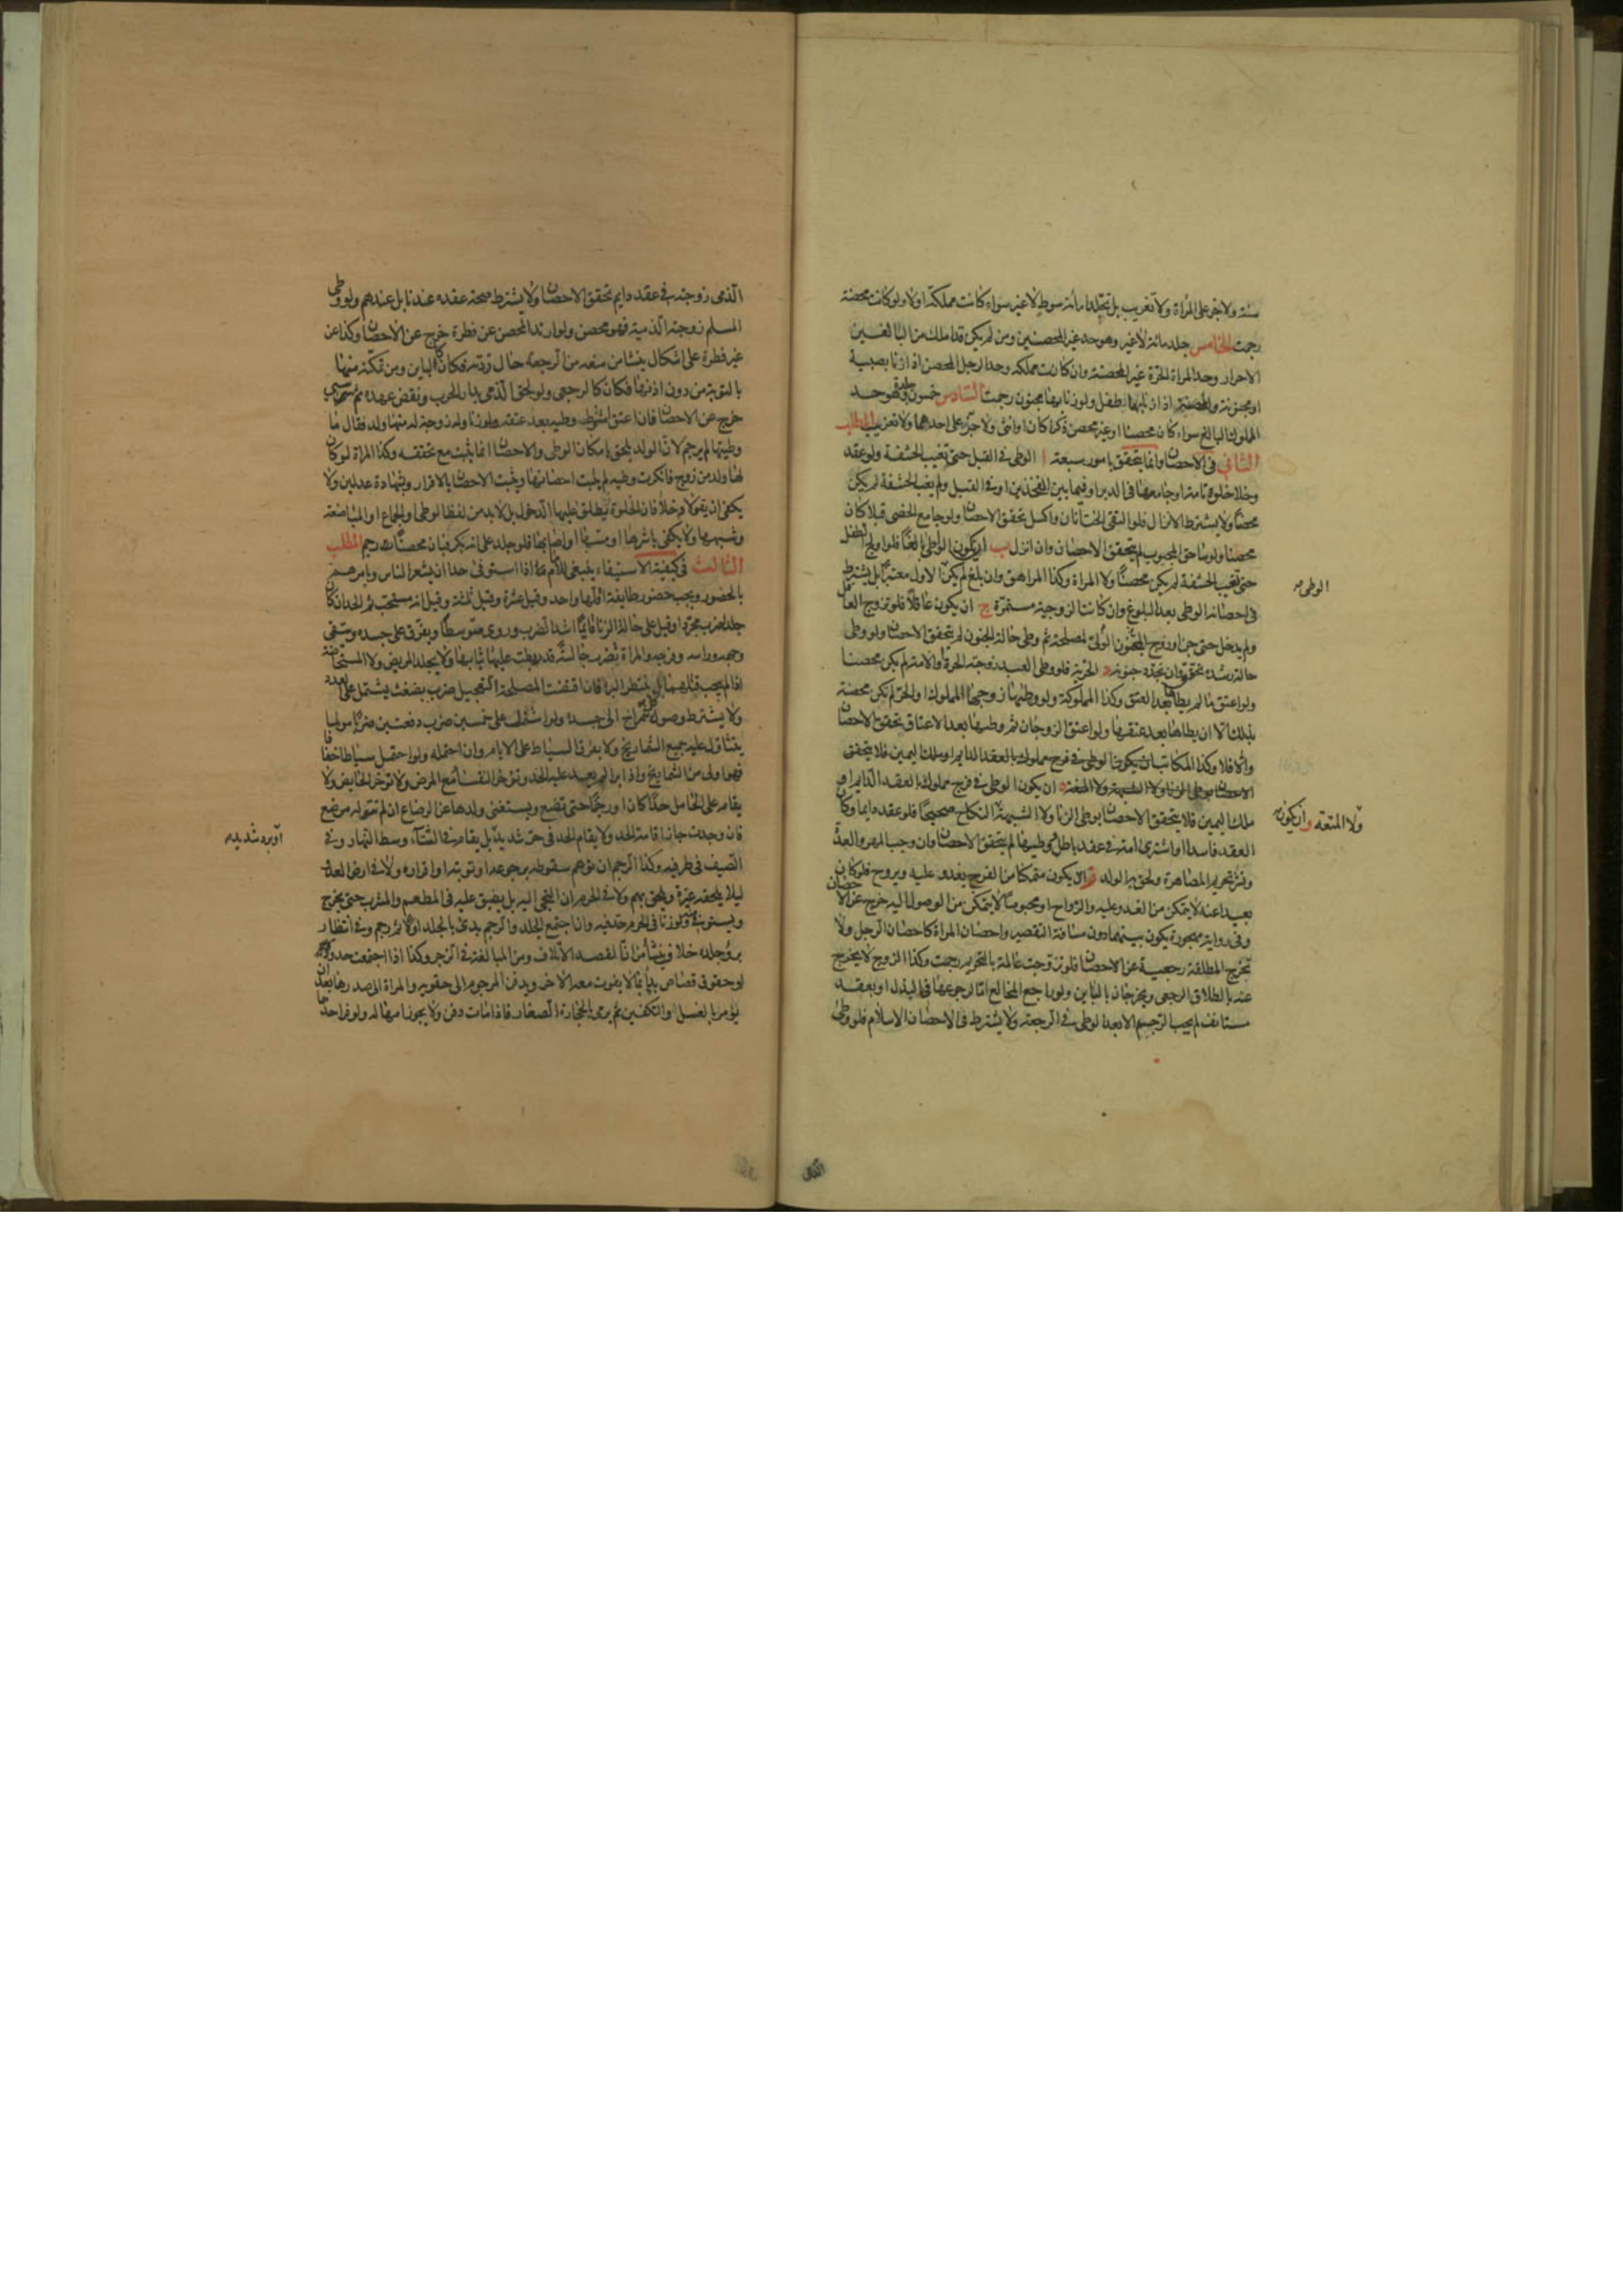 سنة ولا جز على المرأة ولا تغريب بل تجلد مائة سوط لا غير سواء كانت مملكة اولا ولو كانت محصنة
رجمت الخامس جلد مائة لا غير وهو حد غير المحصنين ومن لم يكن قد املك من البالغين
الاحرار وحد المرأة الحرة غير المحصنة وان كانت مملكه وحد الرجل المحصن اذا زنا بصبية
او مجنونة والمحصنة اذا زنا بها طفل ولو زنا بها مجنون رجمت السادس خمسون جلدة وهو حد
المملوك البالغ سواء كان محصنا او غير محصن ذكرا كان او انثى ولا جز على احدهما ولا تغريب المطلب
الثاني في الاحصان وانما يتحقق بامور سبعة ا الوطى في القبل حتى تغيب الحشفة ولو عقد
وخلا خلوة تامة او جامعها في الدبر او فيما بين الفخذين او في القبل ولم يغب الحشفة لم يكن
محصنا ولا يشترط الانزال فلو التقى الختانان واكسل تحقق الاحصان ولو جامع الخصى قبلا كان
محصنا ولو ساحق المجبوب لم يتحقق الاحصان وان انزل ب ان يكون الواطى بالغا فلو اولج الطفل
حتى تغيب الحشفة لم يكن محصنا ولا المرأة وكذا المراهق وان بلغ لم يكن الاول معتبرا بل يشترط
في احصانه الوطى بعد البلوغ وان كانت الزوجية مستمرة ج ان يكون عاقلا فلو تزوج العاقل
ولم يدخل حتى جن او زوج المجنون الولى لمصلحة ثم وطى حالة الجنون لم تتحقق الاحصان ولو وطى
حالة رشده تحقق وان تجدد جنونه د الحرية فلو وطى العبد زوجته الحرة والامة لم يكن محصنا
ولو اعتق ما لم يطأها بعد العتق وكذا المملوكة ولو وطئها زوجها المملوك او الحر لم تكن محصنة
بذلك الا ان يطأها بعد عتقها ولو اعتق الزوجان ثم وطئها بعد الاعتاق تحقق الاحصان
والا فلا وكذا المكاتب ان يكون الوطى في فرج مملوك بالعقد الدايم او ملك اليمين فلا يتحقق
الاحصان بوطى الزنا ولا الشبهة ولا المتعة ه ان يكون الوطى في فرج مملوك بالعقد الدايم او
ملك اليمين فلا يتحقق الاحصان بوطى الزنا ولا الشبهة النكاح صحيحا فلو عقد دايما وكان
العقد فاسدا او اشترى امة في عقد باطل ووطيها لم يتحقق الاحصان وان وجب المهر والعدة
ونشر تحريم المصاهرة ولحق به الولد ز ان يكون متمكنا من الفرج يغدو عليه ويروح فلو كان
بعيدا عنه لا يتمكن من الغدو عليه والرواح او محبوسا لا يتمكن من الوصول اليه خرج عن الاحصان
وفي رواية مهجورة يكون بينهما دون مسافة التقصير واحصان المرأة كاحصان الرجل ولا
تخرج المطلقة رجعية عن الاحصان فلو تزوجت عالمة بالتحريم رجمت وكذا الزوج لا يخرج
عنه بالطلاق الرجعى ويخرجان بالباين ولو راجع المخالع اما لرجوعها في البذل او بعقد
مستانف لم يجب الرجم الا بعد الوطى في الرجعة ولا يشترط في الاحصان الاسلام فلو وطى
الوطى
ولا المتعة و ان يكون
الذمى
الذمى زوجته في عقد دايم تحقق الاحصان ولا يشترط صحة عقده عندنا بل عندهم ولو وطى
المسلم زوجته الذمية فهو محصن ولو ارتد المحصن عن فطرة خرج عن الاحصان وكذا عن
غير فطرة على اشكال ينشأ من منعه من الرجعة حال ردته فكان كالباين ومن تمكنه منها
بالتوبة من دون اذنها فكان كالرجعى ولو لحق الذمى بدار الحرب ونقض عهده ثم سبى
خرج عن الاحصان فان اعتق اشترط وطيه بعد عتقه ولو زنا وله زوجة له منها ولد فقال ما
وطيتها لم يرجم لان الولد يلحق بامكان الوطى والاحصان انما يثبت مع تحققه وكذا المرأة لو كان
لها ولد من زوج فانكرت وطيه لم يثبت احصانها ويثبت الاحصان بالاقرار وبشهادة عدلين ولا
يكفى ان يقولا دخل فان الخلوة يطلق عليها الدخول بل لا بد من لفظ الوطى والجماع او المباضعة
وشبهها ولا يكفى باشرها او مسها او اصابها فلو جلد على انه بكر فبان محصنا رجم المطلب
الثالث في كيفية الاستيفاء ينبغى للامام اذا استوفى حدا ان يشعر الناس ويامرهم
بالحضور ويجب حضور طايفة اقلها واحد وقيل عشرة وقيل ثلثة وقيل انه مستحب ثم الحد ان كان
جلدا ضرب مجردا وقيل على حالة الزنا قايما اشد الضرب وروى متوسطا ويفرق على جسده ويتقى
وجهه وراسه وفرجه والمرأة تضرب جالسة قد ربطت عليها ثيابها ولا يجلد المريض ولا المستحاضة
اذا لم يجب قتلهما بل ينتظر البرء فان اقتضت المصلحة التعجيل ضرب بضغث يشتمل على العدد
ولا يشترط وصول كل شمراخ الى جسده ولو اشتمل على خمسين ضرب دفعتين ضربا مولما
يتثاقل عليه جميع الشماريخ ولا يفرق السياط على الايام وان احتمله ولو احتمل سياطا خفافا
فهو اولى من الشماريخ واذا برا لم يعد عليه الحد وتؤخر النفساء مع المرض ولا تؤخر الحايض ولا
يقام على الحامل حدا كان او رجما حتى تضع ويستغنى ولدها عن الرضاع ان لم تتفق له مرضع
فان وجدت جاز اقامة الحد ولا يقام الحد في حر شديد بل يقام في الشتاء وسط النهار وفى
الصيف في طرفيه وكذا الرجم ان توهم سقوطه برجوعه او توبته او اقراره ولا في ارض العدو
ليلا يلحقه غيرة ويلحق بهم ولا في الحرم ان التجى اليه بل يضيق عليه في المطعم والمشرب حتى يخرج
ويستوفى ولو زنا في الحرم حد فيه واذا اجتمع الجلد والرجم بدئ بالجلد اولا ثم رجم وفى انتظار
برؤ جلده خلاف ينشأ من ان القصد الاتلاف ومن المبالغة في الزجر وكذا اذا اجتمعت حدود
او حقوق قصاص بدأ بما لا يفوت معه الاخر ويدفن المرجوم الى حقويه والمرأة الى صدرها بعد ان
يؤمر بالغسل والتكفين ثم يرمى بالحجارة الصغار فاذا مات دفن ولا يجوز اهماله ولو فر احدهما
او برد شديد